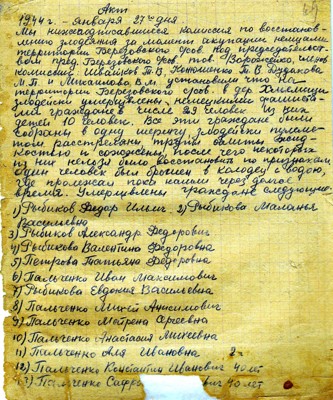 Акт
1944 г. - января 27го дня
Мы нижеподписавшиеся комиссия по восстанов-
лению злодеяния за момент оккупации немцами
территории Березовского с/сов. под председательст-
вом пред. Березовского с/сов. тов. Воробченко, членов
комиссии П.В. Кононенко П.В.
М.П. и В.М. установили что на
территории Березовского с/сов. в дер. Хмелищи
злодейски умерщвлены немецкими фашиста-
ми граждане в числе 29 человек из них
детей 10 человек. Все эти граждане были
собраны в одну шеренгу, злодейски пулемё-
том расстреляны трупы были
и сожжены, после чего некоторых
из них нельзя было восстановить по признакам
один человек был брошен в колодец с водою,
где пролежал пока нашли через долгое
время. Умерщвлены граждане следующие
1) Рыбиков Федор Ильич 2) Рыбикова Маланья
Васильевна
3) Рыбиков Александр Федорович
4) Рыбикова Валентина Федоровна
5) Петрова Татьяна Федоровна
6) Пальченко Иван Максимович
7) Рыбикова Евдокия Васильевна
8) Пальченко Михей Анисимович
9) Пальченко Матрена Сергеевна
10) Пальченко Анастасия Михеевна
11) Пальченко Аля Ивановна 2 г.
12) Пальченко Константин Иванович 40 лет
13) Пальченко 40 лет